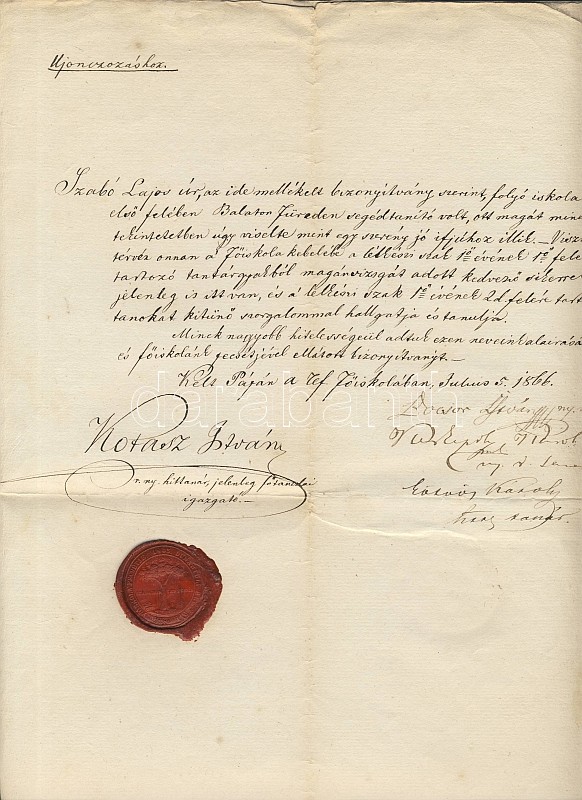 Ujonczozáshoz.
Szabó Lajos úr, az ide mellékelt bizonyítvány szerint, folyó iskola
első felében Balaton Füreden segédtanító volt, ott magát mind
tekintetben úgy viselte mint egy szerény jó ifjúhoz illik. – Vissz
térvén onnan a Főiskola kebelébe a lelkészi szak 1ső évének 1ső fele
tartozó tantárgyakból magánvizsgát adott kedvező sikerre
jelenleg is itt van, és a lelkészi szak 1ső évének 2d. felére tart
tanokat kitünő szorgalommal hallgatja és tanulja.
Minek nagyobb hitelességeül adtuk ezen neveink aláirásá
és főiskolánk pecsétjével ellátott bizonyitványt. –
Kelt Pápán a ref Főiskolában, Julius 5. 1866.
Bocsor István ny.
Kotasz István
r. ny. hittanár, jelenleg főtanodai
igazgató. –
Eötvös Károly
darabanth